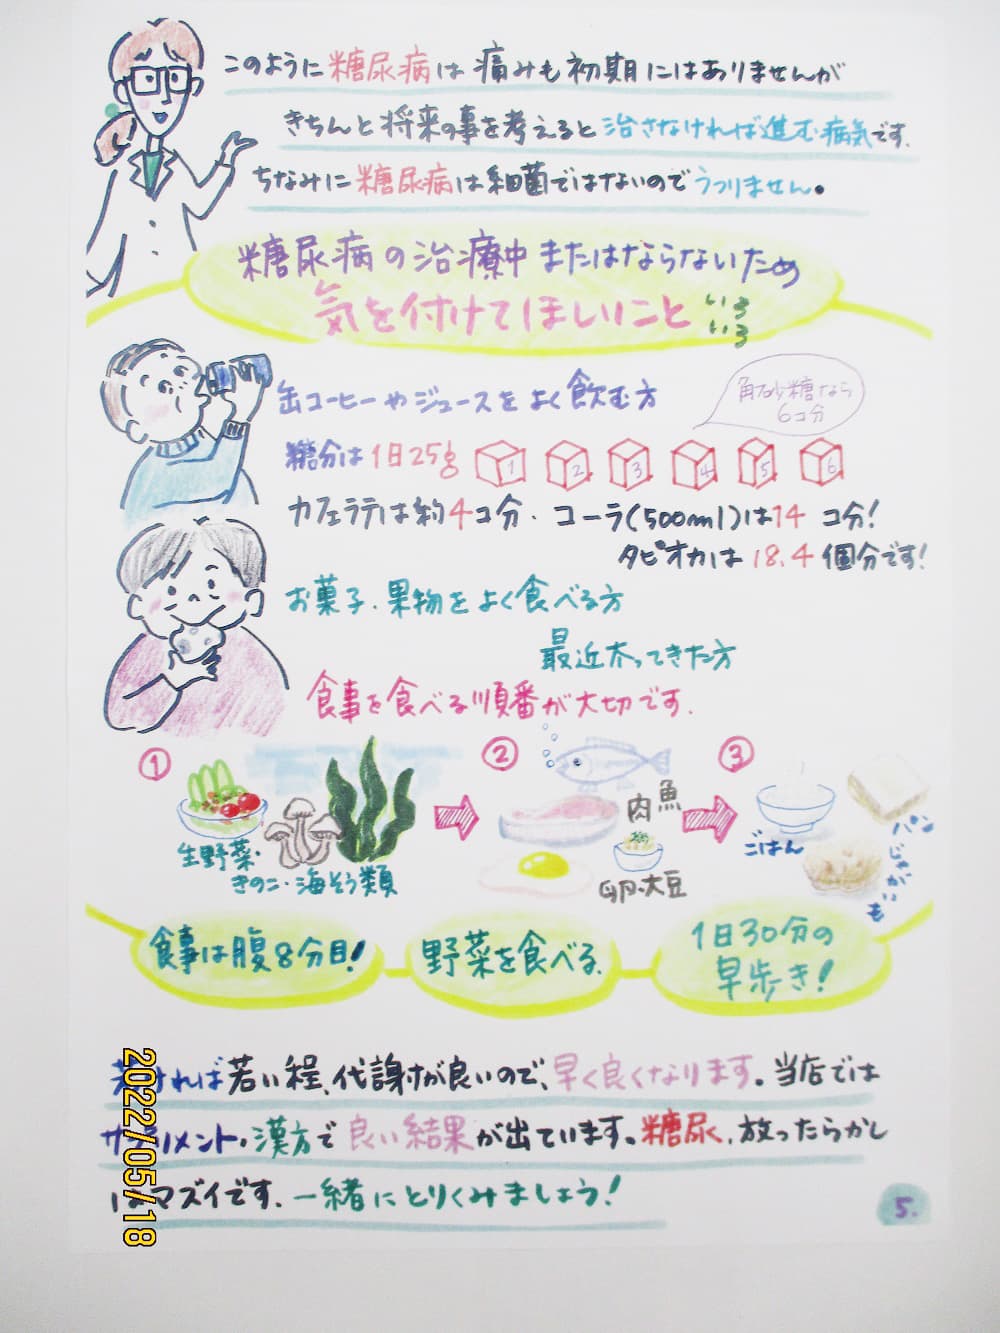 このように糖尿病は痛みも初期にはありませんが
きちんと将来の事を考えると治さなければ進む病気です.
ちなみに糖尿病は細菌ではないのでうつりません。
糖尿病の治療中またはならないため
気を付けてほしいこと
いろ
いろ
缶コーヒーやジュースをよく飲む方
角砂糖なら
6コ分
糖分は1日25g
1 2 3 4 5 6
カフェラテは約4コ分・コーラ(500ml)は14コ分!
タピオカは18.4個分です!
お菓子・果物をよく食べる方
最近太ってきた方
食事を食べる順番が大切です.
①
②
③
生野菜・
きのこ・海そう類
肉 魚
卵・大豆
ごはん
パン
じゃがいも
食事は腹8分目!
野菜を食べる.
1日30分の
早歩き!
若ければ若い程、代謝が良いので、早く良くなります。当店では
サプリメント・漢方で良い結果が出ています。糖尿、放ったらかし
はマズイです.一緒にとりくみましょう!
5.
2022/05/18